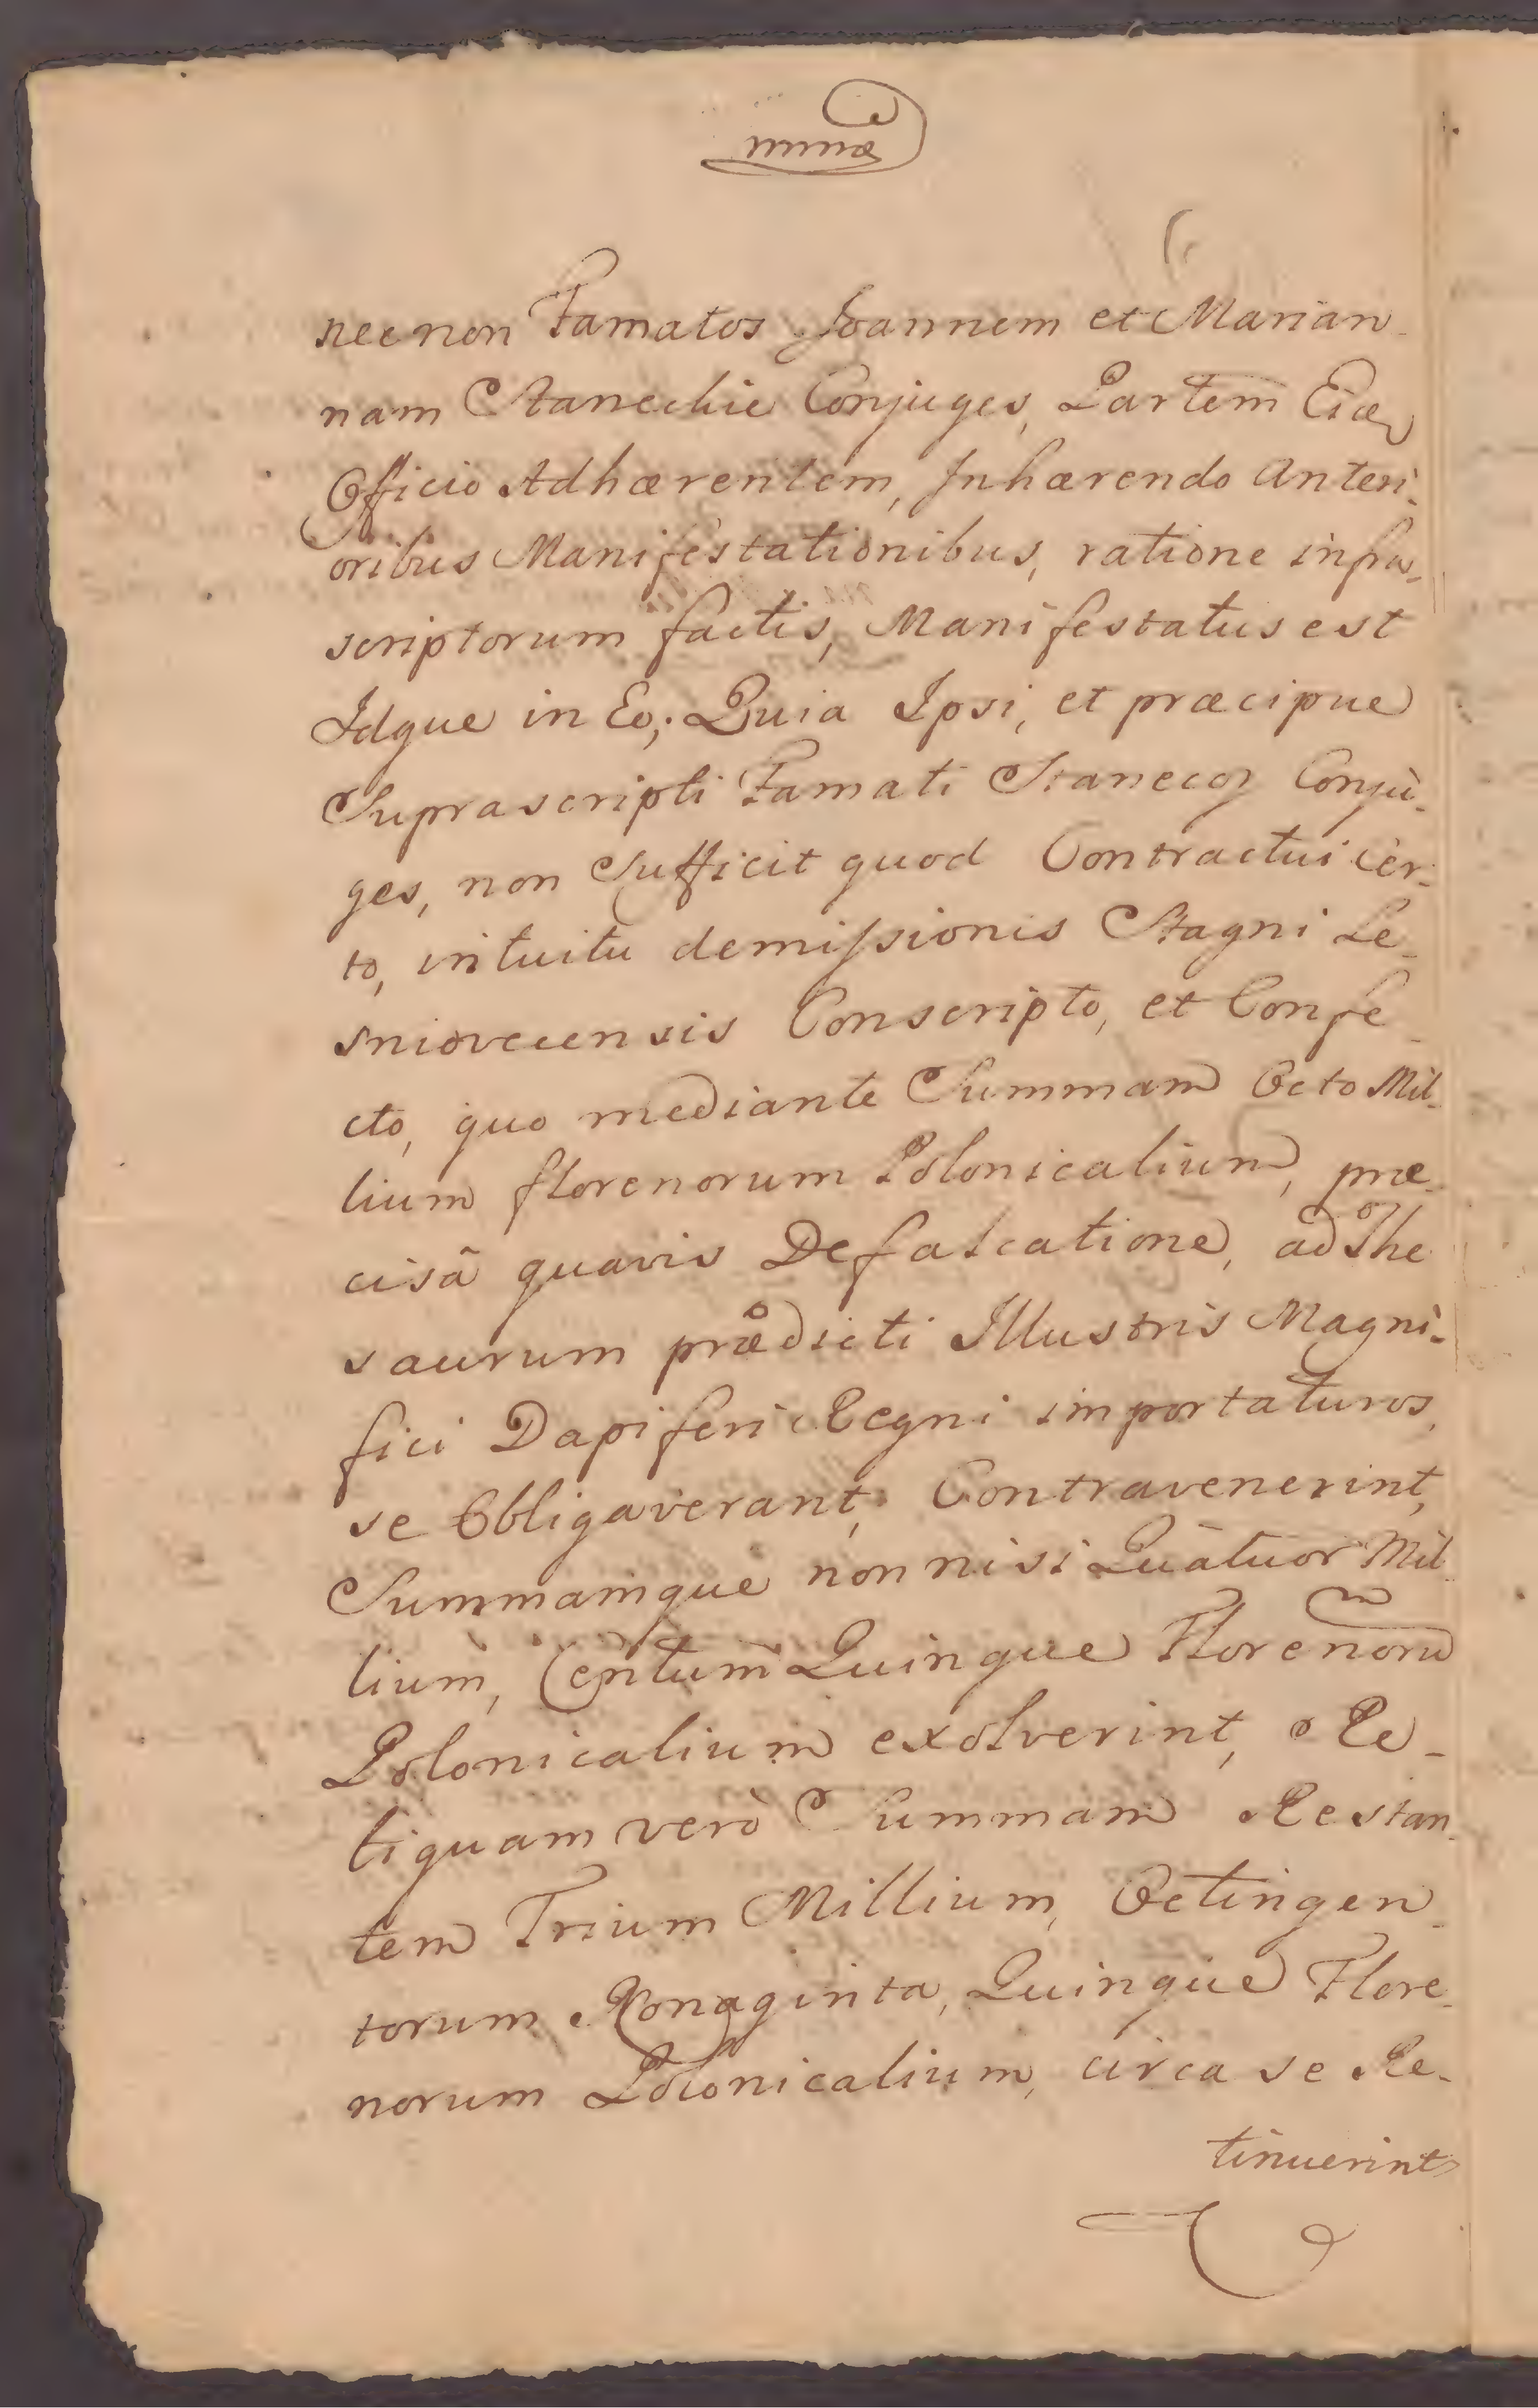 necnon Famatos Joannem et Marian-
nam Stanechie Conjuges, Partem
Officio Adhærentem, Inhærendo Anteri-
oribus Manifestationibus, ratione infra-
scriptorum factis, Manifestatus est
Idque in Eo; Quia Ipsi, et præcipue
Suprascripti Famati Conju-
ges, non Sufficit quod Contractui cer-
to, intuitu demissionis Stagni Le-
sniovecensis Conscripto, et Confe-
cto, quo mediante Summam Octo Mil-
lium florenorum Polonicalium, præ-
cisâ quavis Defalcatione, ad The-
saurum prædicti Illustris Magni-
fici Dapiferi Regni importaturos,
se Obligaverant, Contravenerint,
Summamque non nisi Quatuor Mil-
lium, Centum Quinque Florenorũ
Polonicalium exolverint, Re-
liquam verò Summam Restan-
tem Trium Millium, Octingen-
torum Nonaginta, Quinque Flore-
norum Polonicalium, circa se Re-
tinuerint